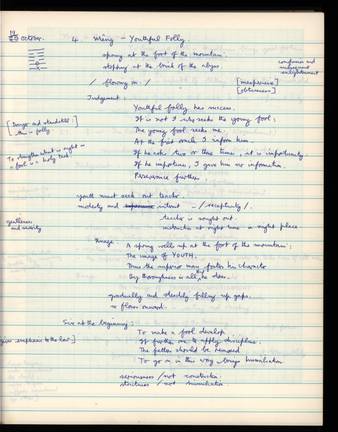 19
October.
4 Mêng – Youthful Folly.
spring at the foot of the mountain.
stopping at the brink of the abyss
confusion and
subsequent
enlightenment
/ flowing on : /
[inexperience]
[obtuseness]
Judgement :
Youthful folly has success.
It is not I who seeks the young fool;
The young fool seeks me.
At the first oracle I inform him.
If he asks two or three times, it is importunity.
If he importunes, I give him no information.
Perseverance furthers.
[Danger and standstill :
this is folly
To strengthen what is right in
a fool is a holy task!
youth must seek out teacher.
modesty and interest – / receptivity /.
teacher is sought out.
instructs at right time & right place
gentleness
and severity
Image. A spring wells up at the foot of the mountain;
The image of YOUTH.
Thus the superior man fosters his character
By thoroughness in all that he does.
gradually and steadily filling up gaps
so flows onward.
Six at the beginning :
To make a fool develop
It furthers one to apply discipline.
The fetters should be removed.
To go on in this way brings humiliation.
give emphasis to the last]
seriousness / not
strictness / not humiliation